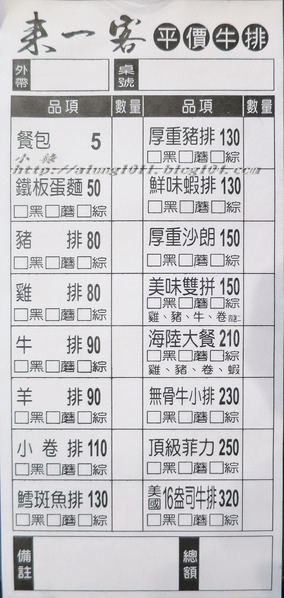 來一客 平價牛排
外帶 桌號
品項 數量 品項 數量
餐包 5
厚重豬排 130
□黑□蘑□綜
小緁
http://alung1011.blog104.com/
鐵板蛋麵 50
□黑□蘑□綜
鮮味蝦排 130
□黑□蘑□綜
豬排 80
□黑□蘑□綜
厚重沙朗 150
□黑□蘑□綜
雞排 80
□黑□蘑□綜
美味雙拼 150
□黑□蘑□綜
雞、豬、牛、卷
牛排 90
□黑□蘑□綜
海陸大餐 210
□黑□蘑□綜
雞、豬、卷、蝦
羊排 90
□黑□蘑□綜
無骨牛小排 230
□黑□蘑□綜
小卷排 110
□黑□蘑□綜
頂級菲力 250
□黑□蘑□綜
鱈斑魚排 130
□黑□蘑□綜
美國16盎司牛排 320
□黑□蘑□綜
備註 總額